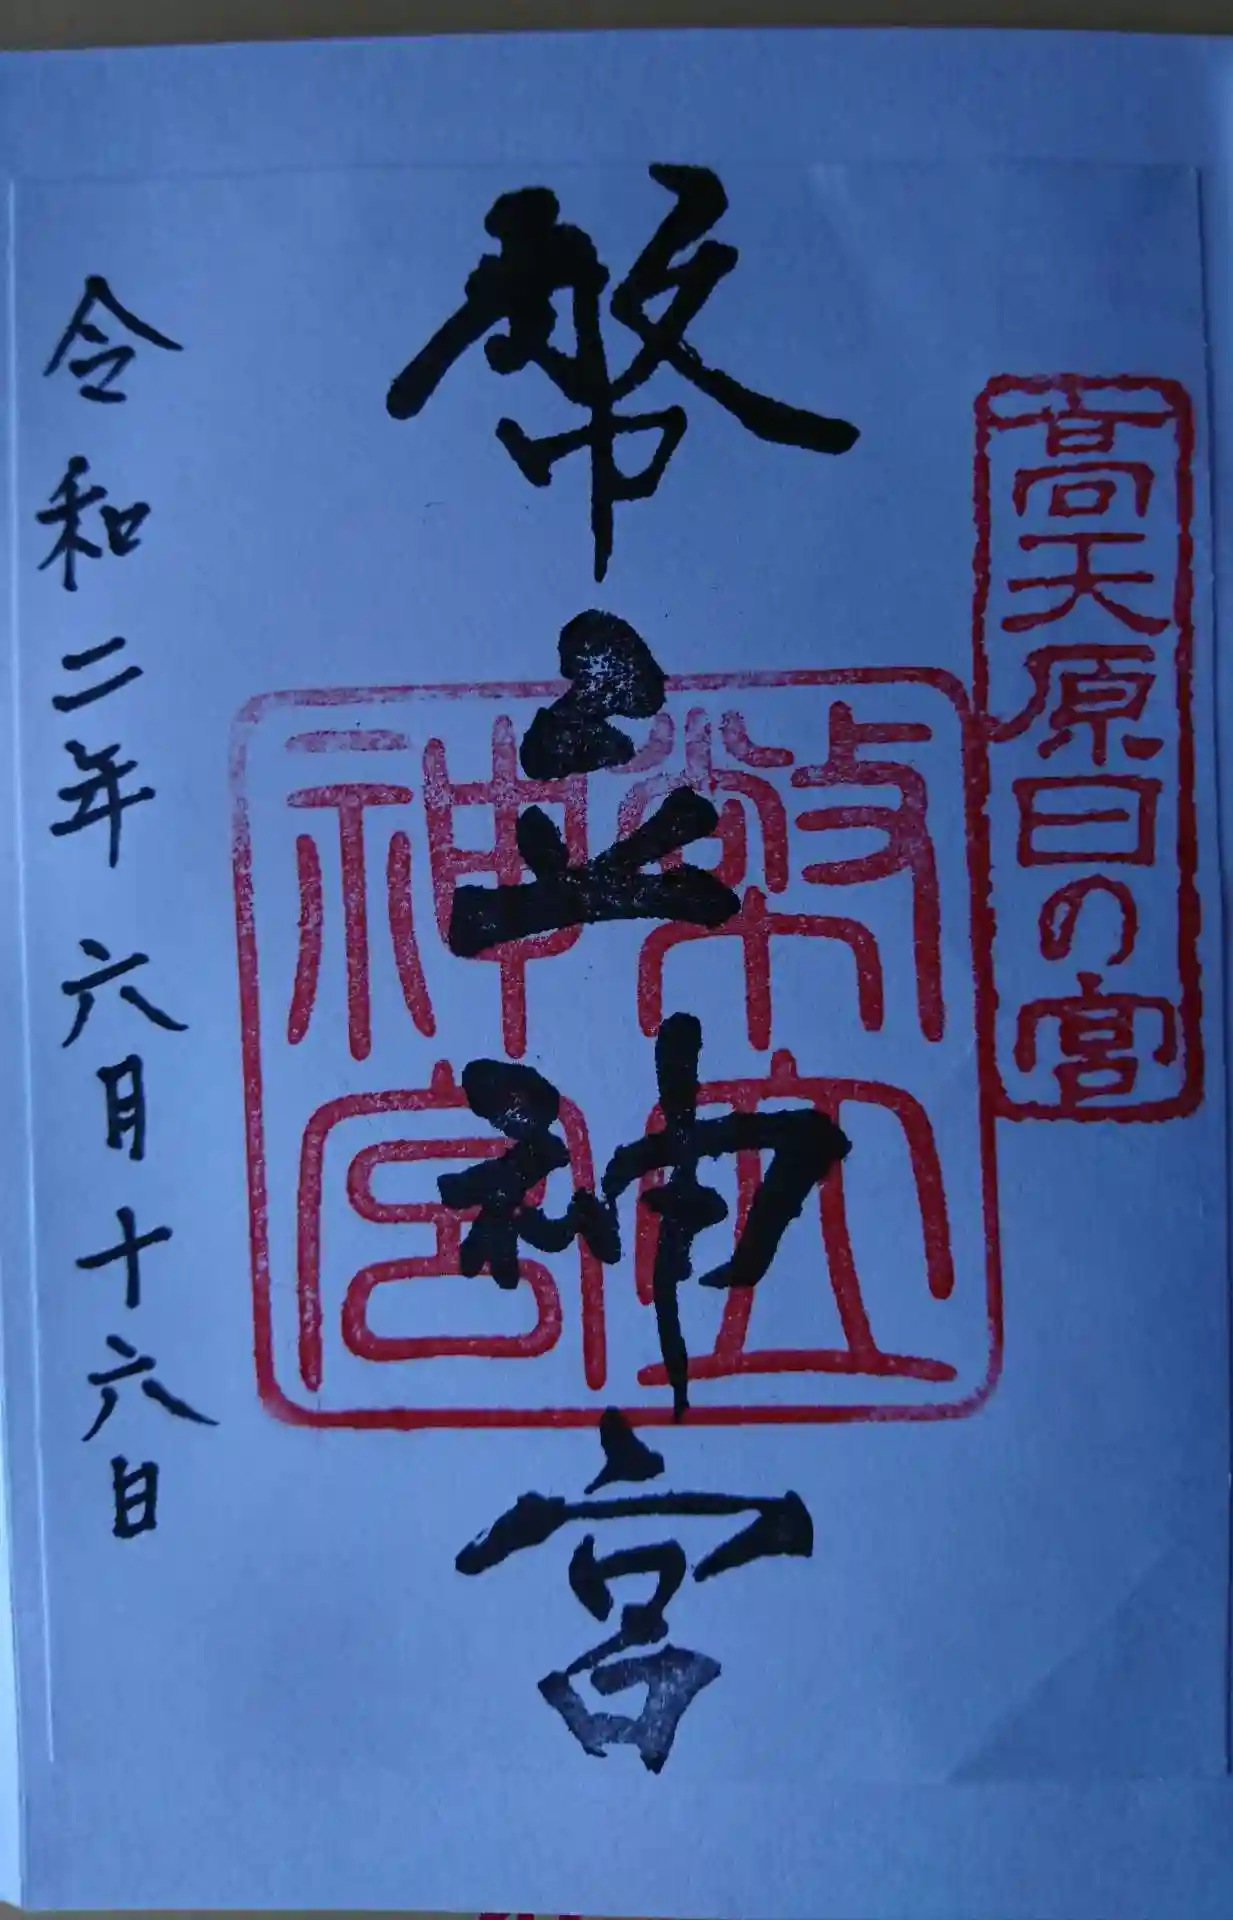 高天原日の宮
幣立神宮
幣立
神宮
令和二年 六月十六日